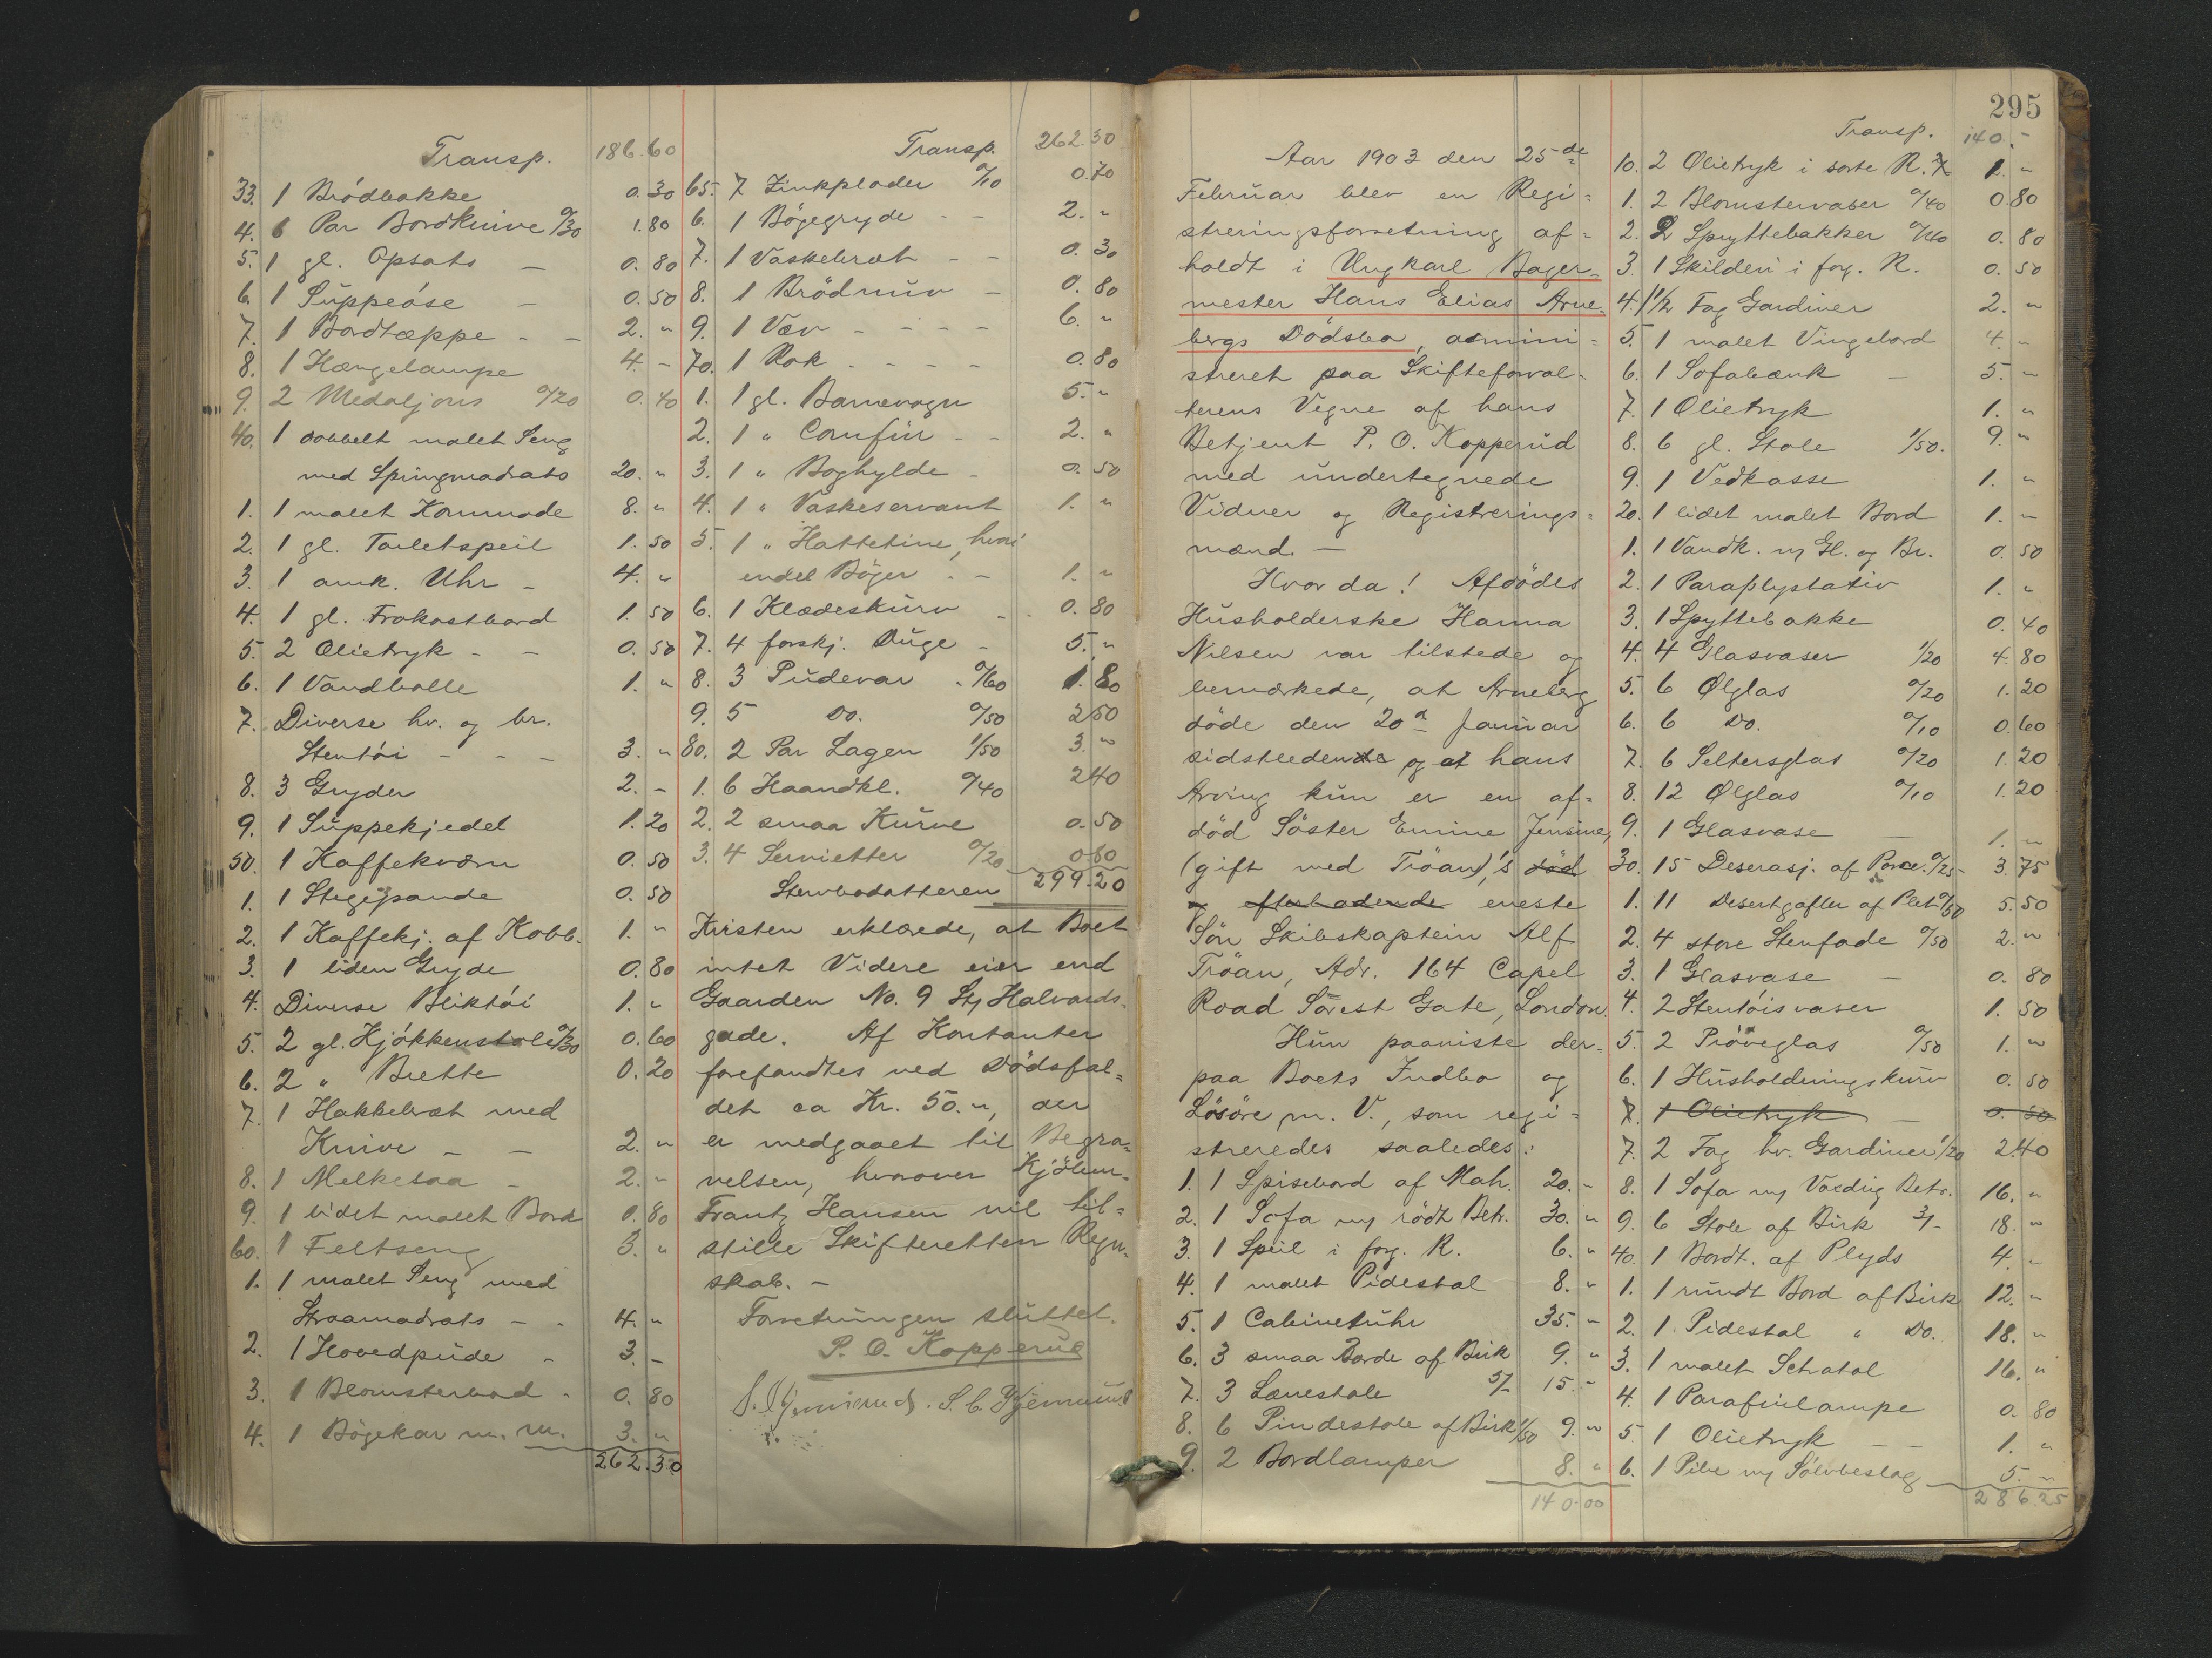 Transp. 186.60
33. 1 Brödbakke 0.30
4. 6 Par Bordknive 0/30 1.80
5. 1 gl. Opsats — 0.80
6. 1 Suppeöse — 0.50
7. 1 Bordtæppe - - 2. "
8. 1 Hængelampe 4. -
9. 2 Medaljons 0/20 0.40
40. 1 dobbelt malet Seng
med Springmadrats 20. "
1. 1 malet Kommode 8. "
2. 1 gl. Toiletspeil 1.50
3. 1 amk. Uhr - 4. "
4. 1 gl. Frokostbord 1.50
5. 2 Olietryk - - 0.50
6. 1 Vandbolle 1. "
7. Diverse hv. og br.
Stentöi - - - 3. "
8. 3 Gryder 2. -
9. 1 Suppekjedel 1.20
50. 1 Kaffekværn 0.50
1. 1 Stegepande 0.50
2. 1 Kaffekj. af Kobb. 1. "
3. 1 liden Gryde 0.80
4. Diverse Bliktöi 1. "
5. 2 gl. Kjökkenstole 0/30 0.60
6. 2 " Brette 0.20
7. 1 Hakkebræt med
Knive - - 2. "
8. 1 Melkesaa - 2. "
9. 1 lidet malet Bord 0.80
60. 1 Feltseng 3. "
1. 1 malet Seng med
Straamadrats - - 4. "
2. 1 Hovedpude - 3. -
3. 1 Blomsterbord - 0.80
4. 1 Bögekar m. m. 3. "
262.30
Transp. 262.30
65. 7 Zinkplader 0/10 0.70
6. 1 Bögegryde - - 2. "
7. 1 Vaskebræt - - 0.30
8. 1 Brödkurv - 0.80
9. 1 Væv - - - - 6. "
70. 1 Rok - - - - 0.80
1. 1 gl. Barnevogn 5. "
2. 1 " Comfür - - 2. "
3. 1 " Boghylde - 0.50
4. 1 " Vaskeservant 1. "
5. 1 " Hattetine, hvori
endel Böger - - 1. "
6. 1 Klædeskurv - . 0.80
7. 4 forskj. Duge - 5. "
8. 3 Pudevar . 0/60 1.80
9. 5 Do. 0/50 250
80. 2 Par Lagen 1/50 3. "
1. 6 Haandkl. 0/40 240
2. 2 smaa Kurve 0.50
3. 4 Servietter 0/20 0.80
299.20
Stervbodatteren
Kirsten erklærede, at Boet
intet Videre eier end
Gaarden No. 9 St. Halvards-
gade. Af Kontanter
forefandtes ved Dödsfal-
det ca Kr. 50. ", der
er medgaaet til Begra-
velsen, hvorover Kjöbm.
Frantz Hansen vil til-
stille Skifteretten Regn-
skab. —
Forretningen sluttet.
P. O. Kopperud
295
Aar 1903 den 25de
Februar blev en Regi-
streringsforretning af-
holdt i Ungkarl Bager-
mester Hans Elias Arne-
bergs Dödsbo, admini-
streret paa Skifteforval-
terens Vegne af hans
Betjent P. O. Kopperud
med undertegnede
Vidner og Registrerings-
mænd. —
Hvor da! Afdödes
Husholderske Hanna
Nilsen var tilstede og
bemærkede, at Arneberg
döde den 20d Januar
sidstleden og at hans
Arving kun er en af-
död Söster Emine Jensine,
(gift med Tröan)'s död
og efterladende eneste
Sön Skibskaptein Alf
Tröan, Adr. 164 Capel
Road Forest Gate, London.
Hun paaviste der-
paa Boets Indbo og
Lösöre m. V., som regi-
streredes saaledes:
1. 1 Spisebord af Mah. 20. "
2. 1 Sofa m/ rödt Betr. 30. "
3. 1 Speil i forg. R. 6. "
4. 1 malet Pidestal 8. "
5. 1 Cabinetuhr 35. -
6. 3 smaa Borde af Birk 9. "
7. 3 Lænestole 5/- 15. -
8. 6 Pindestole af Birk 1/50 9. "
9. 2 Bordlamper 8. "
140.00
Transp. 140. -
10. 2 Olietryk i sorte R. 1. "
1. 2 Blomstervaser 0/40 0.80
2. 2 Spyttebakker 0/40 0.80
3. 1 Skilderi i forg. R. 0.50
4. 1 1/2 Fag Gardiner 2. "
5. 1 malet Vingebord 4. -
6. 1 Sofabænk — 5. "
7. 1 Olietryk 1. "
8. 6 gl. Stole 1/50. 9. "
9. 1 Vedkasse 1. "
20. 1 lidet malet Bord 1. -
1. 1 Vandk. m/ Gl. og Br. 0.50
2. 1 Paraplystativ 1. "
3. 1 Spyttebakke 0.40
4. 4 Glasvaser 1/20 4.80
5. 6 Ølglas 0/20 1.20
6. 6 Do. 0/10 0.60
7. 6 Seltersglas 0/20 1.20
8. 12 Ølglas 0/10 1.20
9. 1 Glasvase — 1. "
30. 15 Deserasj. af Porce. 0/25 3.75
1. 11 Desertgafler af Plet 0/50 5.50
2. 4 store Stenfade 0/50 2. "
3. 1 Glasvase — 0.80
4. 2 Stentöisvaser 1.50
5. 2 Pröveglas 0/50 1. "
6. 1 Husholdningskurv 0.50
7. 1 Olietryk — 0.50
7. 2 Fag hv. Gardiner 1/20 240
8. 1 Sofa m/ Voxdug Betr. 16. "
9. 6 Stole af Birk 3/- 18. "
40. 1 Bordt. af Plyds 4. "
1. 1 rundt Bord af Birk 12. "
2. 1 Pidestal " Do. 18. "
3. 1 malet Schatol 16. "
4. 1 Parafinlampe 0.80
5. 1 Olietryk — — 1. "
6. 1 Pibe m/ Sölvbeslag 5. "
286.25